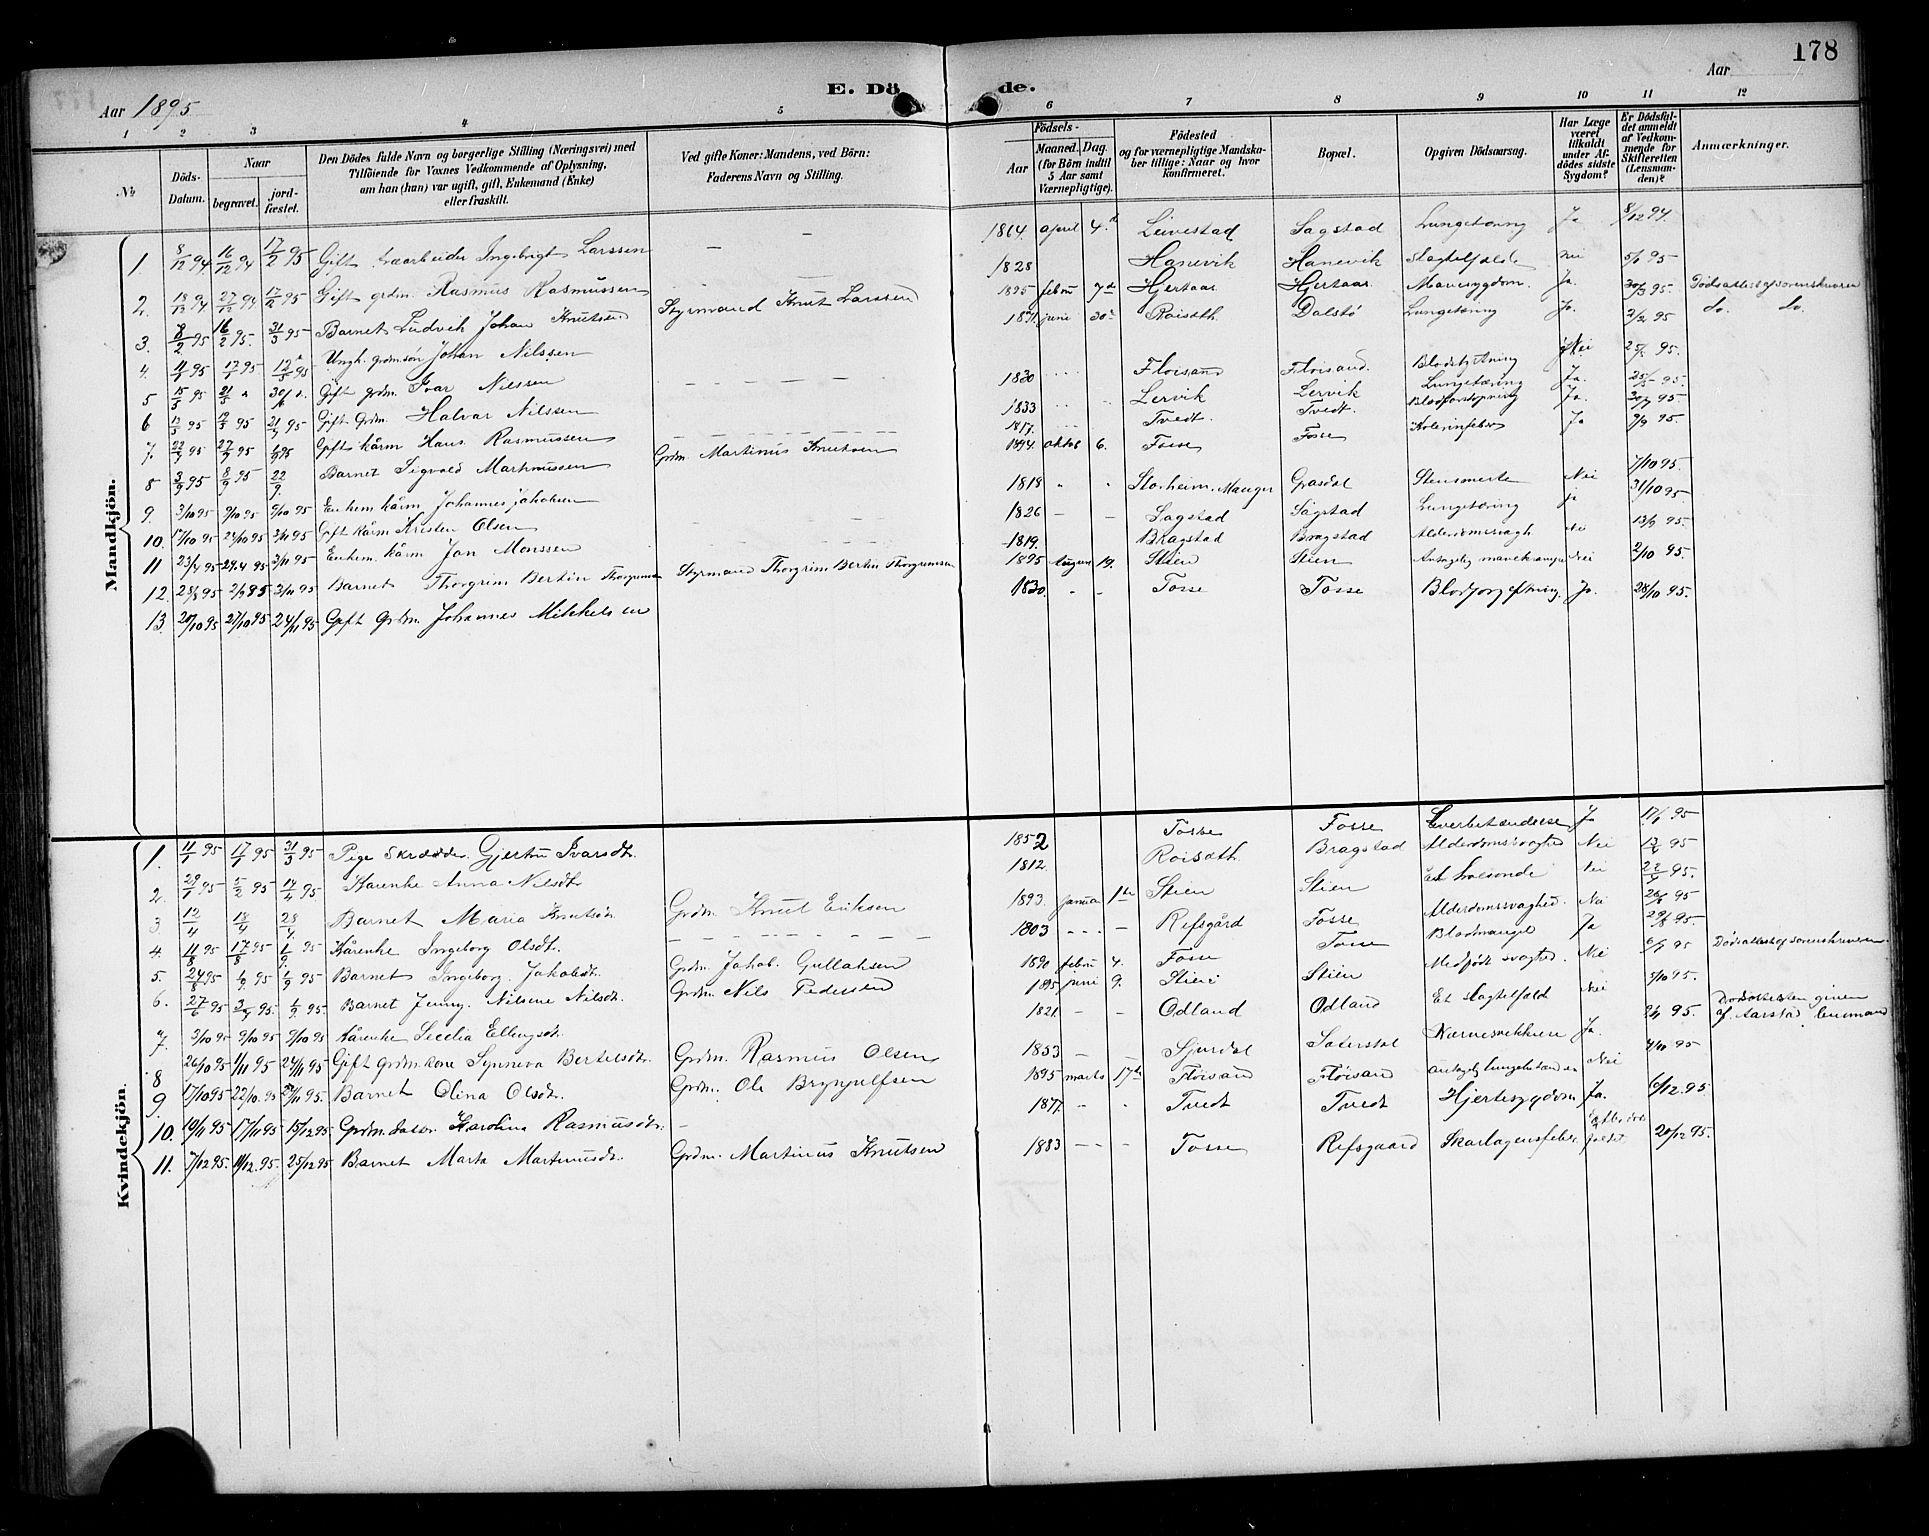 178
Aar 1895
E. Dö de.
Aar
1 2 3 4 5 6 7 8 9 10 11 12
№
Döds-Datum.
Naar begravet. jordfæstet.
Den Dödes fulde Navn og borgerlige Stilling (Næringsvei) med Tilföiende for Voxnes Vedkommende af Oplysning, om han (hun) var ugift, gift, Enkemand (Enke) eller fraskilt.
Ved gifte Koner: Mandens, ved Börn: Faderens Navn og Stilling.
Födsels-
Aar
Maaned. Dag. (for Börn indtil 5 Aar samt Værnepligtige).
Födested og for værnepligtige Mandskaber tillige: Naar og hvor konfirmeret.
Bopæl.
Opgiven Dödsaarsag.
Har Læge været tilkaldt under Afdödes sidste Sygdom?
Er Dödsfaldet anmeldt af Vedkommende for Skifteretten (Lensmanden)?
Anmærkninger.
Mandkjön.
1. 8/12 94 16/12 94 17/2 95 Gift Ingebrigt Larssen — — 1864 april 4de Leivestad Sagstad Lungetæring Ja 8/12 94.
2. 18/12 94 27/12 94 17/2 95 Gift grdm. Rasmus Rasmussen — — 1828 Hanevik Hanevik Slagtilfælde Nei 5/1 95
3. 8/2 95 16/2 95 31/3 95 Barnet Ludvik Johan Knutsen Styrmand Knut Larssen 1895 febru 7de Hjertaas Hjertaas Mavesygdom Ja. 30/3 95. Dödsattest af sorenskriveren
4. 11/1 95 17/1 95 Ungk. grdmsön Johan Nilssen 1871 juni 30te Roisæth Dalstö Lungetæring Ja. 2/2 95 do. do.
5 15/5 95 21/5 Gift grdm. Ivar Nilssen — — — — 1830 Floisand Floisand Blodspytning Nei 25/5 95.
6 95 95 95 Gift Grdm. Halvar Nilssen 1833 Lervik Lervik Lungetæring Ja. 95.
7. 22/7 95 27/7 95 95 Gift kårm Hans Rasmussen — — — — 1817. Tvedt. Tvedt. Blodforstopning Ja. 95
8 3/9 95 8/9 95 22/9. Barnet Sigvald Martinussen Grdm. Martinus Knutsen 1894 oktob 6. Fosse Fosse Kolerinfeber Ja 9/9 95
9. 3/10 95 9/10 95 9/10 95 Enkem. kårm Johannes Jakobsen 1818 Storheim. Manger Grasdal Stensmerte Nei 7/10 95.
10. 17/10 95 24/10 95 3/11 95 Gift kårm Kristen Olsen 1826 — — Sagstad Sagstad Lungetæring ja 31/10 95
11 23/4 95 29.4 95 3/11 95 Enkem. kårm Jon Monssen 1819. Bragstad Bragstad Alderdomssvagh Nei 95.
12. 28/8 95 2/9 95 3/10 95 Barnet Thorgrim Bertin Styrmand Thorgrim Bertin Thorgrimsen 1895 august 19. Stien Stien Antagelig mavekrampe Nei 2/10 95
13. 20/10 95 27/10 95 24/11 95 Gift Grdm. Johannes Mikkelsen 1830. Fosse Fosse Ja. 28/10 95.
Kvindekjön.
1. 11/1 95 17/1 95 31/3 95 Pige Gjertru Ivarsdt. 1852 Fosse Fosse Leverbetændelse Ja 17/1 95
2. 29/1 95 5/2 95 17/4 95 Kårenke Anna Nilsdt. 1812. Roisæth. Bragstad Alderdomssvaghed Nei 95
3 12/4 18/4 28/4. Barnet Maria Knutsdt. Grdm. Knut Eriksen 1893. janua 1te Stien Stien Et halsonde Nei 22/4 95.
4. 11/8 95 17/8 95 1/9. 95 Kårenke Ingeborg Olsdt. — — — 1803 Refsgård Fosse Alderdomssvaghed. Nei 95
5. 24/8 95 1/9 95 1/9 95 Barnet Ingeborg Jakobsdt. Grdm. Jakob. Gullaksen 1890 febru 4. Fosse Fosse Blodmangel Ja 29/8 95.
6. 27/6 95 3/7 95. 1/9. 95 Barnet Jenny Nilsine Nilsdt. Grdm. Nils Pedersen 1895 juni 9. Stien Stien Medfödt svaghed. Nei 95 Dödsattest af sorenskriveren
7. 3/10 95 9/10 95 9/10 95 Kårenke Secelia Ellingsdt. 1821. — — Odland Odland Et slagtilfæld Nei 5/10 95.
8 26/10 95 1/11 95 24/11 95 Gift grdmkone Synneva Bertelsdt. Grdm. Rasmus Olsen 1853 — — Sjurdal Sæterstøl Nervesvækkelse Ja. 95. Dödsattesten given af Aarstad, lensmand
9 17/10 95 22/10. 95 24/11 95. Barnet Olina Olsdt. Grdm. Ole Brynjulfsen 1895 marts 17de Floisand Floisand Nei 4/11 95
10. 10/11 95 17/11 95 15/12 95 Grdm.dater Karolina Rasmusdt. — 1877 — Tvedt Tvedt Hjertesygdom Ja. 95.
11. 7/12 95. 11/12. 95. 25/12 95 Barnet Marta Martinusdt. Grdm. Martinus Knutsen 1883 — — Fosse Refsgaard Skarlagensfeber 20/12 95.